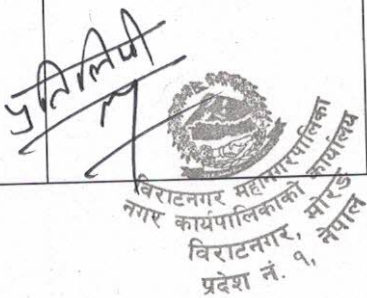 प्रतिलिपी
विराटनगर महानगरपालिका
नगर कार्यपालिकाको कार्यालय
विराटनगर, मोरङ
प्रदेश नं. १, नेपाल